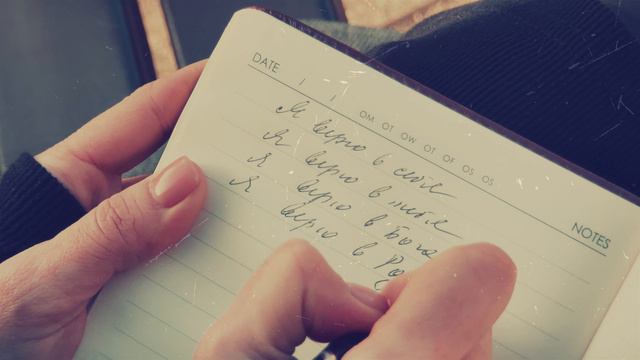 DATE / / OM OT OW OT OF OS OS
NOTES
Я верю в себя
Я верю в тебя
Я верю в Бога
Я верю в Ро